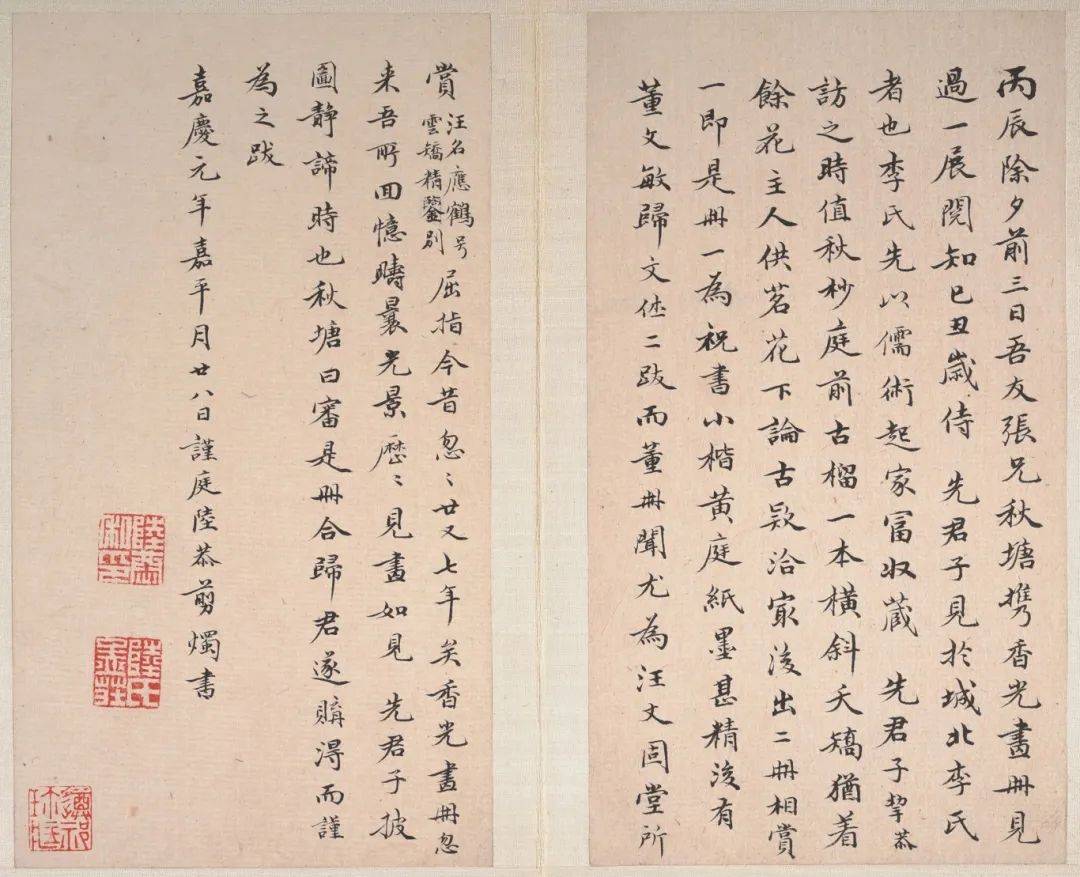 丙辰除夕前三日吾友張兄秋塘携香光畫冊見
過一展閱知己丑歲侍 先君子見於城北李氏
者也李氏先以儒術起家富收藏 先君子挈恭
訪之時值秋杪庭前古榴一本橫斜夭矯猶着
餘花主人供茗花下論古欵洽冣後出二冊相賞
一即是冊一為祝書小楷黃庭紙墨甚精後有
董文敏歸文休二跋而董冊聞尤為汪文固堂所
賞 汪名應鶴号
雲矯精鑒別
屈指今昔忽〻廿又七年矣香光畫冊忽
来吾所回憶疇曩光景歷〻見畫如見 先君子披
圖静諦時也秋塘曰審是冊合歸君遂購得而謹
為之跋
嘉慶元年嘉平月廿八日謹庭陸恭剪燭書
陸恭私印